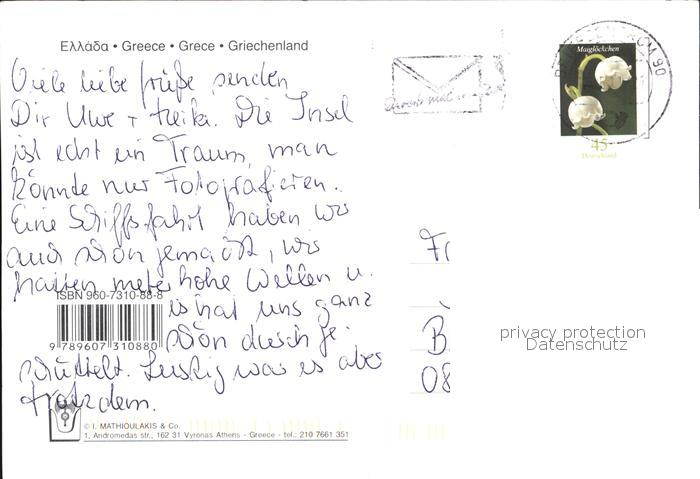 Ελλάδα • Greece • Grece • Griechenland
Viele liebe Grüße senden
Dir Uwe + Heike. Die Insel
ist echt ein Traum, man
könnte nur Fotografieren.
Eine Schiffsfahrt haben wir
auch schon gemacht, wir
hatten meterhohe Wellen u.
es hat uns ganz
schön durchge-
schüttelt. Lustig war es aber
trotzdem.
ISBN 960-7310-88-8
9 789607 310880
© I. MATHIOULAKIS & Co.
1, Andromedas str., 162 31 Vyronas Athens - Greece - tel.: 210 7661 351
Maiglöckchen
45
Deutschland
90
B
08
privacy protection
Datenschutz